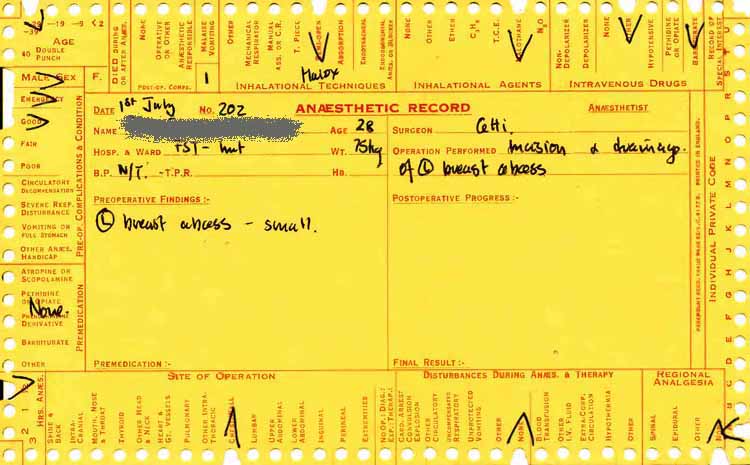 -29 -19 -9 < 2
-39
40 DOUBLE PUNCH
AGE
MALE SEX F.
DIED DURING OR AFTER ANÆS.
NONE
OPERATIVE OR OTHER
ANÆSTHETIC RESPONSIBLE
MALAISE VOMITING
OTHER
POST-OP. COMPS.
1
MECHANICAL RESPIRATOR
MANUAL ASS. OR C.R.
T. PIECE
SEMI-OPEN
ABSORPTION
ENDOTRACHEAL
NONE
INHALATIONAL TECHNIQUES
Halox
OTHER
ETHER
C₃H₆
T.C.E.
HALOTHANE
N₂O
INHALATIONAL AGENTS
NON-DEPOLARIZER
DEPOLARIZER
NONE
OTHER
HYPOTENSIVE
PETHIDINE OR OPIATE
BARBITURATE
INTRAVENOUS DRUGS
RECORD OF SPECIAL INTEREST
EMERGENCY
GOOD
FAIR
POOR
CIRCULATORY DECOMPENSATION
SEVERE RESP. DISTURBANCE
VOMITING OR FULL STOMACH
OTHER ANÆS. HANDICAP
PRE-OP. COMPLICATIONS & CONDITION
ATROPINE OR SCOPOLAMINE
PETHIDINE OR OPIATE
None.
PHENOTHIAZINE DERIVATIVE
BARBITURATE
OTHER
PREMEDICATION
DATE 1st July No. 202 ANÆSTHETIC RECORD ANÆSTHETIST
NAME AGE 28 SURGEON
HOSP. & WARD WT. 75kg OPERATION PERFORMED Incision & drainage.
B.P. N/T. -T.P.R. HB. of (L) breast abcess
PREOPERATIVE FINDINGS :- POSTOPERATIVE PROGRESS :-
(L) breast abcess - small.
PREMEDICATION :- FINAL RESULT :-
INDIVIDUAL PRIVATE CODE
PRINTED IN ENGLAND.
SITE OF OPERATION DISTURBANCES DURING ANÆS. & THERAPY REGIONAL ANALGESIA
3 2 1
HRS. ANÆS.
SPINE & BACK
INTRA-CRANIAL
MOUTH, NOSE & THROAT
THYROID
OTHER HEAD & NECK
HEART & GT. VESSELS
PULMONARY
OTHER INTRA-THORACIC
CHEST WALL
LUMBAR
UPPER ABDOMINAL
LOWER ABDOMINAL
INGUINAL
PERINEAL
EXTREMITIES
CARD. ARREST
CONVULSION
EXPLOSION
OTHER CIRCULATORY
RESPIRATORY
UNPROTECTED VOMITING
OTHER
NONE
BLOOD TRANSFUSION
OTHER I.V. FLUID
EXTRA-CORP. CIRCULATION
HYPOTHERMIA
OTHER
SPINAL
EPIDURAL
OTHER